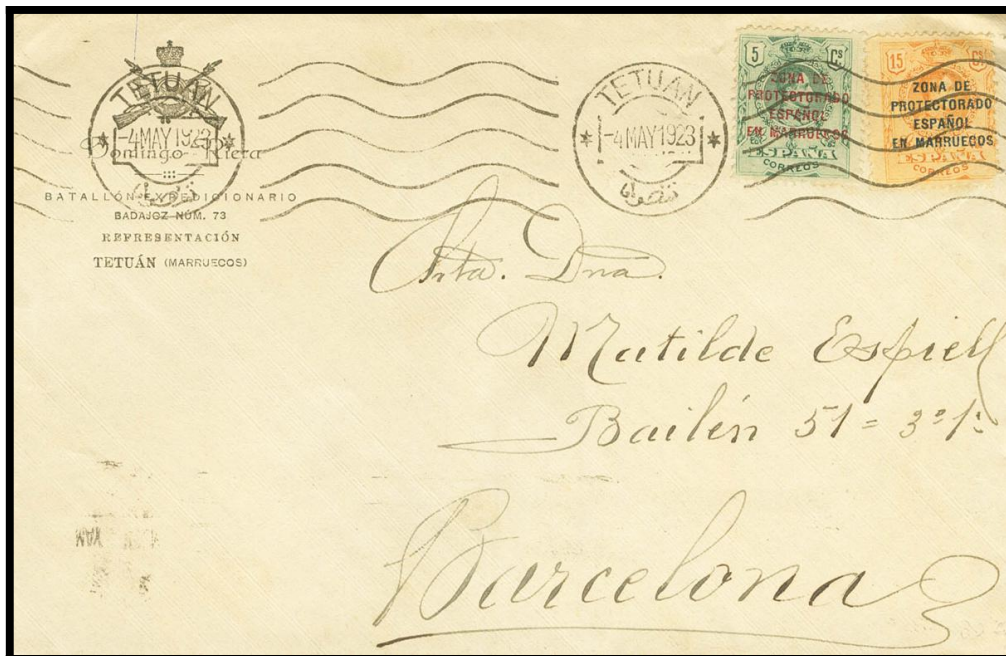 TETUAN
-4MAY1923
Domingo Riera
BATALLÓN EXPEDICIONARIO
BADAJOZ NÚM. 73
REPRESENTACIÓN
TETUÁN (MARRUECOS)
TETUAN
-4MAY1923
تطوان
5 Cs
ZONA DE
PROTECTORADO
ESPAÑOL
EN MARRUECOS
ESPAÑA
CORREOS
15 Cs
ZONA DE
PROTECTORADO
ESPAÑOL
EN MARRUECOS
ESPAÑA
CORREOS
Srta. Dna.
Matilde Espiell
Bailén 51 = 3º 1ª
Barcelona